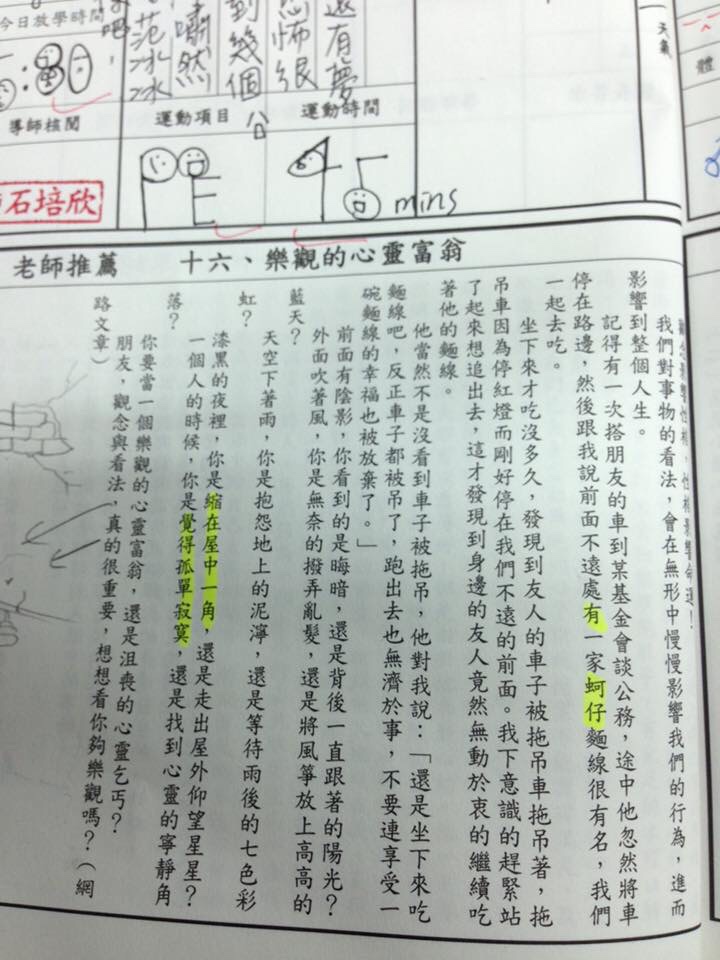 天氣
體
還有夢
怖很
到幾個
嘯然
范冰冰
吧，
今日放學時間
導師核閱
運動項目
運動時間
石培欣
PE
45 mins
老師推薦 十六、樂觀的心靈富翁
觀念影響性格，性格影響命運！
我們對事物的看法，會在無形中慢慢影響我們的行為，進而
影響到整個人生。
記得有一次搭朋友的車到某基金會談公務，途中他忽然將車
停在路邊，然後跟我說前面不遠處有一家蚵仔麵線很有名，我們
一起去吃。
坐下來才吃沒多久，發現到友人的車子被拖吊車拖吊著，拖
吊車因為停紅燈而剛好停在我們不遠的前面。我下意識的趕緊站
了起來想追出去，這才發現到身邊的友人竟然無動於衷的繼續吃
著他的麵線。
他當然不是沒看到車子被拖吊，他對我說：「還是坐下來吃
麵線吧，反正車子都被吊了，跑出去也無濟於事，不要連享受一
碗麵線的幸福也被放棄了。」
前面有陰影，你看到的是晦暗，還是背後一直跟著的陽光？
外面吹著風，你是無奈的撥弄亂髮，還是將風箏放上高高的
藍天？
天空下著雨，你是抱怨地上的泥濘，還是等待雨後的七色彩
虹？
漆黑的夜裡，你是縮在屋中一角，還是走出屋外仰望星星？
一個人的時候，你是覺得孤單寂寞，還是找到心靈的寧靜角
落？
你要當一個樂觀的心靈富翁，還是沮喪的心靈乞丐？
朋友，觀念與看法，真的很重要，想想看你夠樂觀嗎？（網
路文章）